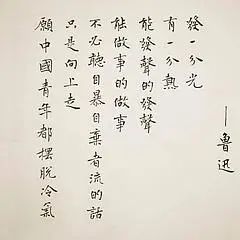 願中國青年都擺脫冷氣
只是向上走
不必聽自暴自棄者流的話
能做事的做事
能發聲的發聲
有一分熱
發一分光
——魯迅